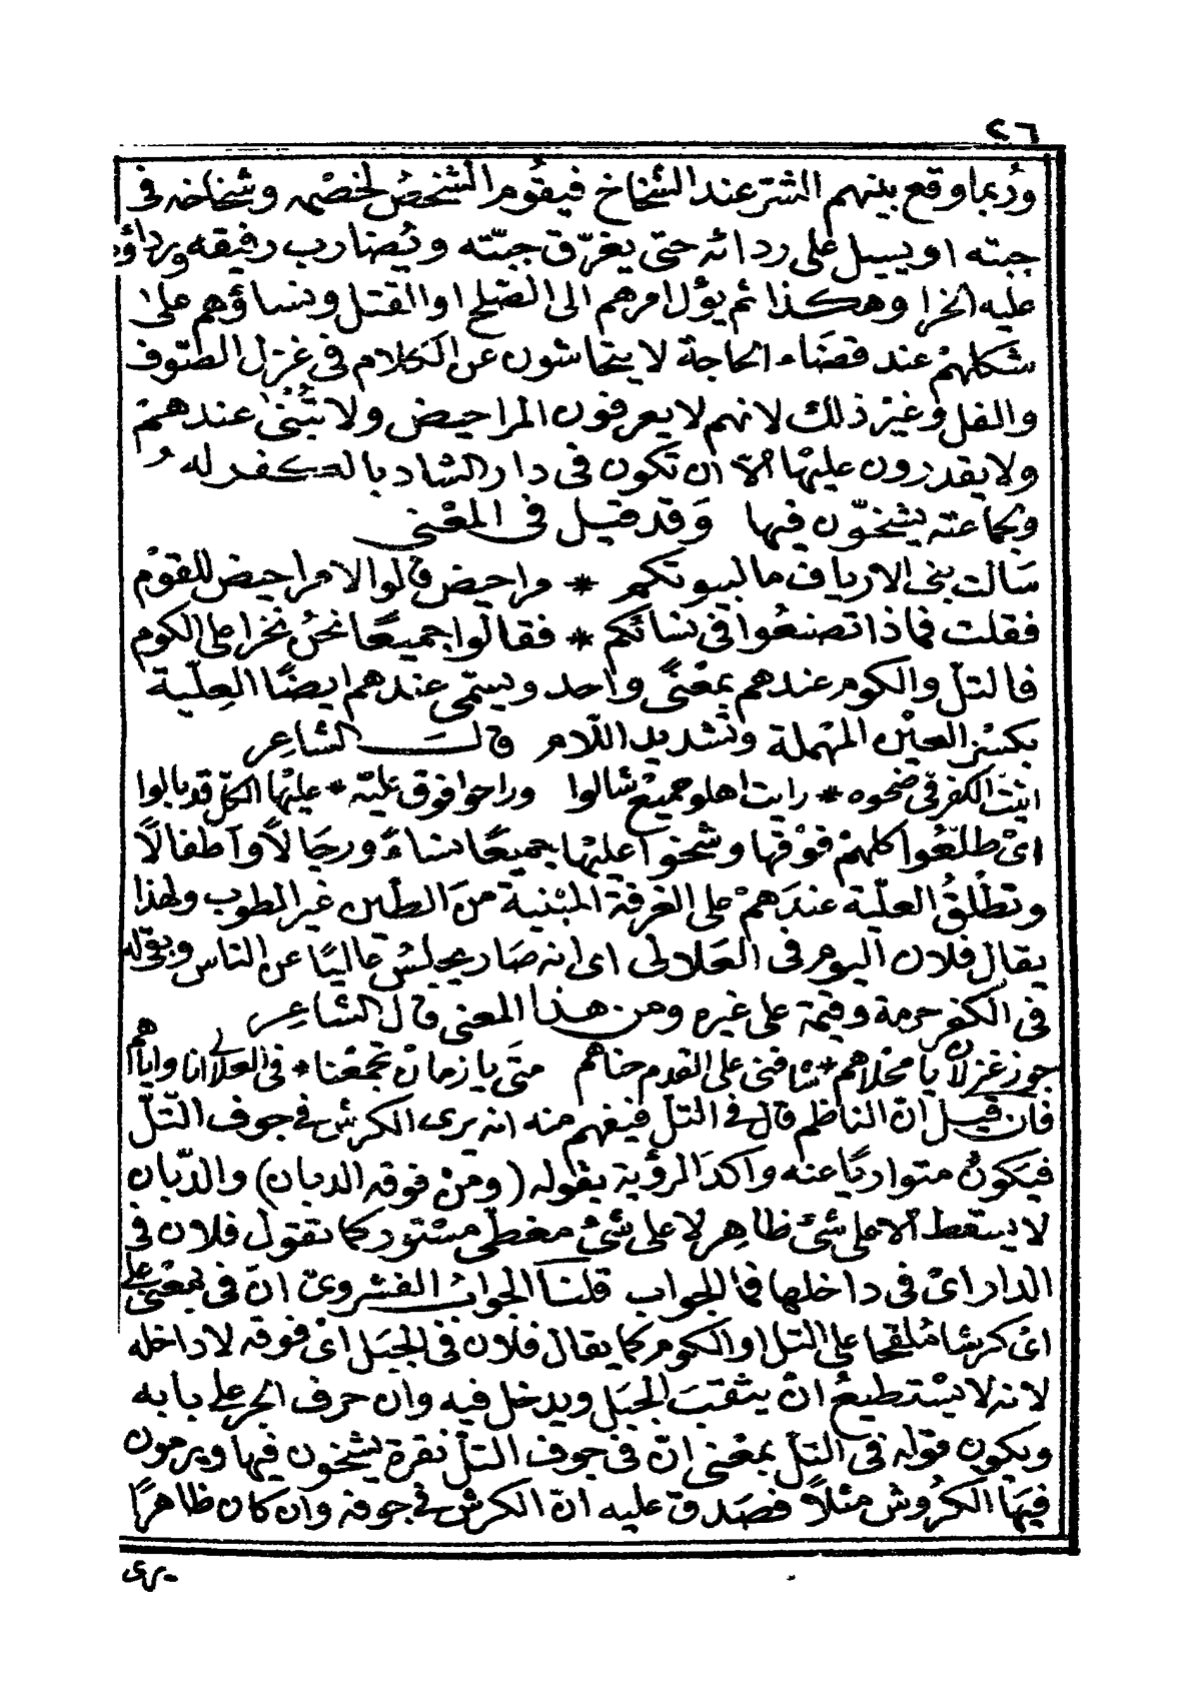 ٢٦
وربما وقع بينهم الشر عند الشخاخ فيقوم الشخص لخصمه وشخاخه في
جبته او يسيل على ردائه حتى يغرّق جبّته ويُضارب رفيقه ورداؤه
عليه الخرا وهكذا ثم يؤل امرهم الى الصّلح او القتل ونساؤهم على
شكلهمْ عند قضَاء الحاجة لا يتحاشون عن الكلام في غزل الصّوف
والفلى وغيْر ذلك لانهم لا يعرفون المراحيض ولا تُبْنَى عندهمْ
ولا يقدرون عليْها الاّ ان تكون في دار الشاد بالكفر له
وبجماعته يشخّون فيها وَقد قيل في المعْنى
سَالت بنى الارياف ما لبيوتكم * مراحيض قالوا لا مراحيض للقوْم
فقلت فماذا تصنعُوا في نسائكم * فقالوا جميعًا نحنُ نخرا على الكوم
فالتلّ والكوم عندهم بمعْنىً واحد ويسمّى عندهم ايضًا العِلّية
بكسْر العيْن المهْملة وتشديد اللّام قالَ الشاعِر
اتيْت الكفر في ضحوه * رايت اهلو جميعْ شالوا وراحوا فوق عليّه * عليْها الكلّ قد بالوا
اىْ طلعُوا كلهمْ فوْقها وشخوا عليْها جميعًا نساءً ورجَالاً وأطفالاً
وتطلقُ العلّية عندَهمْ على الغرفة المبْنية منَ الطّين غير المطوب ولهذا
يقال فلان اليوم في العَلالى اى انه صَار مجلسُ عاليًا عن الناس وبقى له
في الكفر حرمة وقيمة على غيره ومن هذا المعنى قال الشاعِر
جوز غزلان يا محلاهم * شافنى على القدم حناهم متَى يا زمانْ تجمعْنا * في العلالى انا واياهم
فان قيل انّ الناظم قال في التلّ فيفهم منه انه يرى الكرش في جوف التّلّ
فيَكونُ متواريًا عنه وأكدَ الرؤية بقوله (ومنْ فوقه الدبان) والدّبان
لا يسقط الا على شئ ظاهِر لا على شئْ مغطّى مسْتور كما تقول فلان في
الدار اىْ في داخلها فما الجواب قلنَا الجوابُ الفشروىّ انّ في بمعْنى على
اىْ كرشا مُلقحا على التل او الكوم كما يقال فلان في الجبَل اىْ فوقه لا داخله
لانه لا يسْتطيعُ انْ يثقبَ الجبَل ويدخل فيه وان حرف الجر على بابه
ويكون قوله في التلّ بمعْنى انّ في جوف التلّ نقرة يشخون فيها ويرمون
فيهَا الكرُوش مثلاً فصَدق عليه انّ الكرش في جوفه وان كان ظاهرًا
يرى